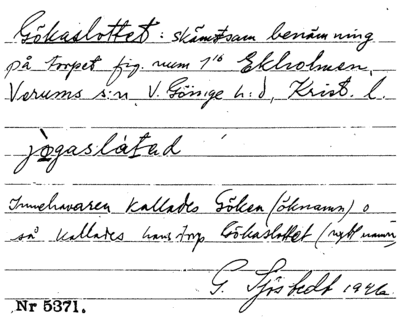 Gökaslottet: skämtsam benämning
på torpet fig. num 1 16 Ekholmen,
Verums s:n V. Göinge h:d, Krist. l.
jøgaslåtad
Innehavaren kallades Göken (öknamn) o
så kallades hans torp Gökaslottet (nytt namn)
G. Sjöstedt 1946
Nr 5371.